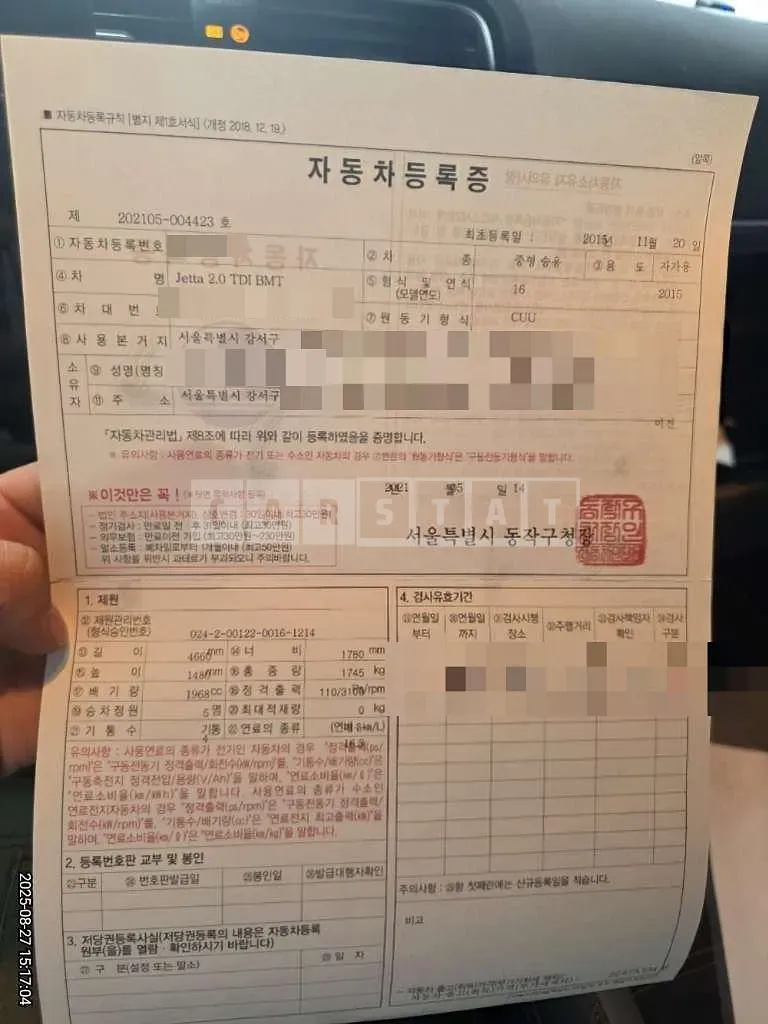 ■ 자동차등록규칙 [별지 제1호서식] 〈개정 2018. 12. 19.〉
(앞쪽)
자동차등록증
제 202105-004423 호
최초등록일 : 2015년 11월 20일
① 자동차등록번호
② 차 종 중형 승용
③ 용 도 자가용
④ 차 명 Jetta 2.0 TDI BMT
⑤ 형식 및 연식 (모델연도) 16 2015
⑥ 차 대 번
⑦ 원 동 기 형 식 CUU
⑧ 사 용 본 거 지 서울특별시 강서구
소유자
⑨ 성명(명칭
⑪ 주 소 서울특별시 강서구
이전
「자동차관리법」 제8조에 따라 위와 같이 등록하였음을 증명합니다.
※ 유의사항 : 사용연료의 종류가 전기 또는 수소인 자동차의 경우 ⑦번란의 '원동기형식'은 '구동전동기형식'을 말합니다.
2021 년 05 월 14 일
※ 이것만은 꼭 !
- 법인 주소지(사용본거지), 상호변경 : 30일이내(최고30만원)
- 정기검사 : 만료일 전 · 후 31일이내 (최고30만원)
- 의무보험 : 만료이전 가입 (최고30만원~230만원)
- 말소등록 : 폐차일로부터 1개월이내 (최고50만원)
위 사항을 위반시 과태료가 부과되오니 주의바랍니다.
CARSTAT
서울특별시 동작구청장
1. 제원
⑫ 제원관리번호 (형식승인번호) 024-2-00122-0016-1214
⑬ 길 이 4660 mm ⑭ 너 비 1780 mm
⑮ 높 이 1480 mm ⑯ 총 중 량 1745 kg
⑰ 배 기 량 1968 cc ⑱ 정 격 출 력 110/3100 /rpm
⑲ 승 차 정 원 5 명 ⑳ 최 대 적 재 량 0 kg
㉑ 기 통 수 4 기통 ㉒ 연료의 종류
유의사항 : 사용연료의 종류가 전기인 자동차의 경우 "정격출력(ps/
rpm)"은 "구동전동기 정격출력/회전수(kW/rpm)"를, "기통수/배기량(cc)"은
"구동축전지 정격전압/용량(V/Ah)"을 말하며, "연료소비율(㎞/ℓ)"은
"연료소비율(㎞/㎾h)"을 말합니다. 사용연료의 종류가 수소인
연료전지자동차의 경우 "정격출력(ps/rpm)"은 "구동전동기 정격출력/
회전수(kW/rpm)"를, "기통수/배기량(cc)"은 "연료전지 최고출력(kW)"을
말하며, "연료소비율(㎞/ℓ)"은 "연료소비율(㎞/㎏)"을 말합니다.
2. 등록번호판 교부 및 봉인
㉓구분 ㉔ 번호판발급일 ㉕봉인일 ㉖발급대행자확인
3. 저당권등록사실(저당권등록의 내용은 자동차등록
원부(을)를 열람 · 확인하시기 바랍니다)
㉗ 구 분(설정 또는 말소) ㉘ 일 자
4. 검사유효기간
연월일 부터
연월일 까지
검사시행 장소
주행거리
검사책임자 확인
검사 구분
주의사항 : ㉙항 첫째란에는 신규등록일을 적습니다.
비고
2025-08-27 15:17:04